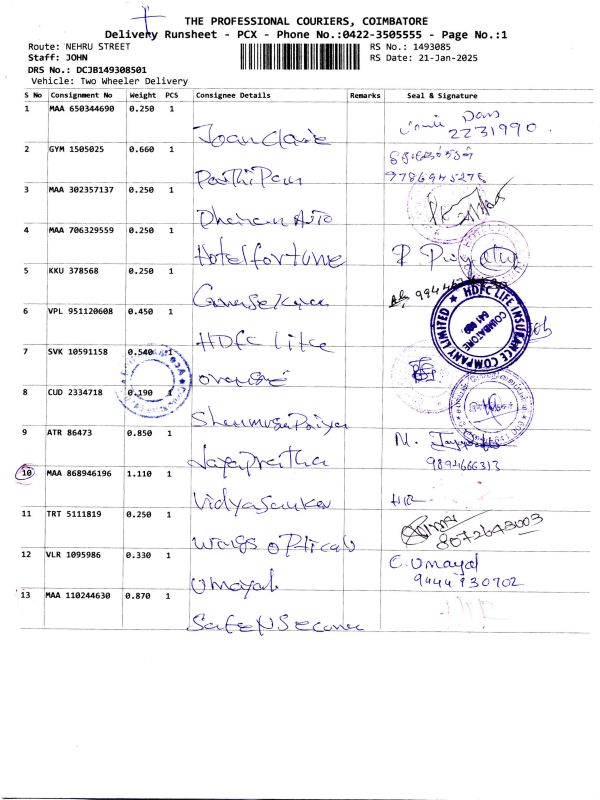 THE PROFESSIONAL COURIERS, COIMBATORE
Delivery Runsheet - PCX - Phone No.:0422-3505555 - Page No.:1
Route: NEHRU STREET RS No.: 1493085
Staff: JOHN RS Date: 21-Jan-2025
DRS No.: DCJB149308501
Vehicle: Two Wheeler Delivery
S No Consignment No Weight PCS Consignee Details Remarks Seal & Signature
1 MAA 650344690 0.250 1
2231990.
2 GYM 1505025 0.660 1
9786945276
3 MAA 302357137 0.250 1
4 MAA 706329559 0.250 1 Hotelfortune
5 KKU 378568 0.250 1
6 VPL 951120608 0.450 1 HDFC Life
HDFC LIFE INSURANCE COMPANY LIMITED
COIMBATORE
7 SVK 10591158 0.540 1
8 CUD 2334718 0.190 1
9 ATR 86473 0.850 1 Jayapratha
M.
9894666313
10 MAA 868946196 1.110 1 Vidyasankar
11 TRT 5111819 0.250 1 Wings opticals
8072643003
12 VLR 1095986 0.330 1 Umayal
C. Umayal
9444930702
13 MAA 110244630 0.870 1